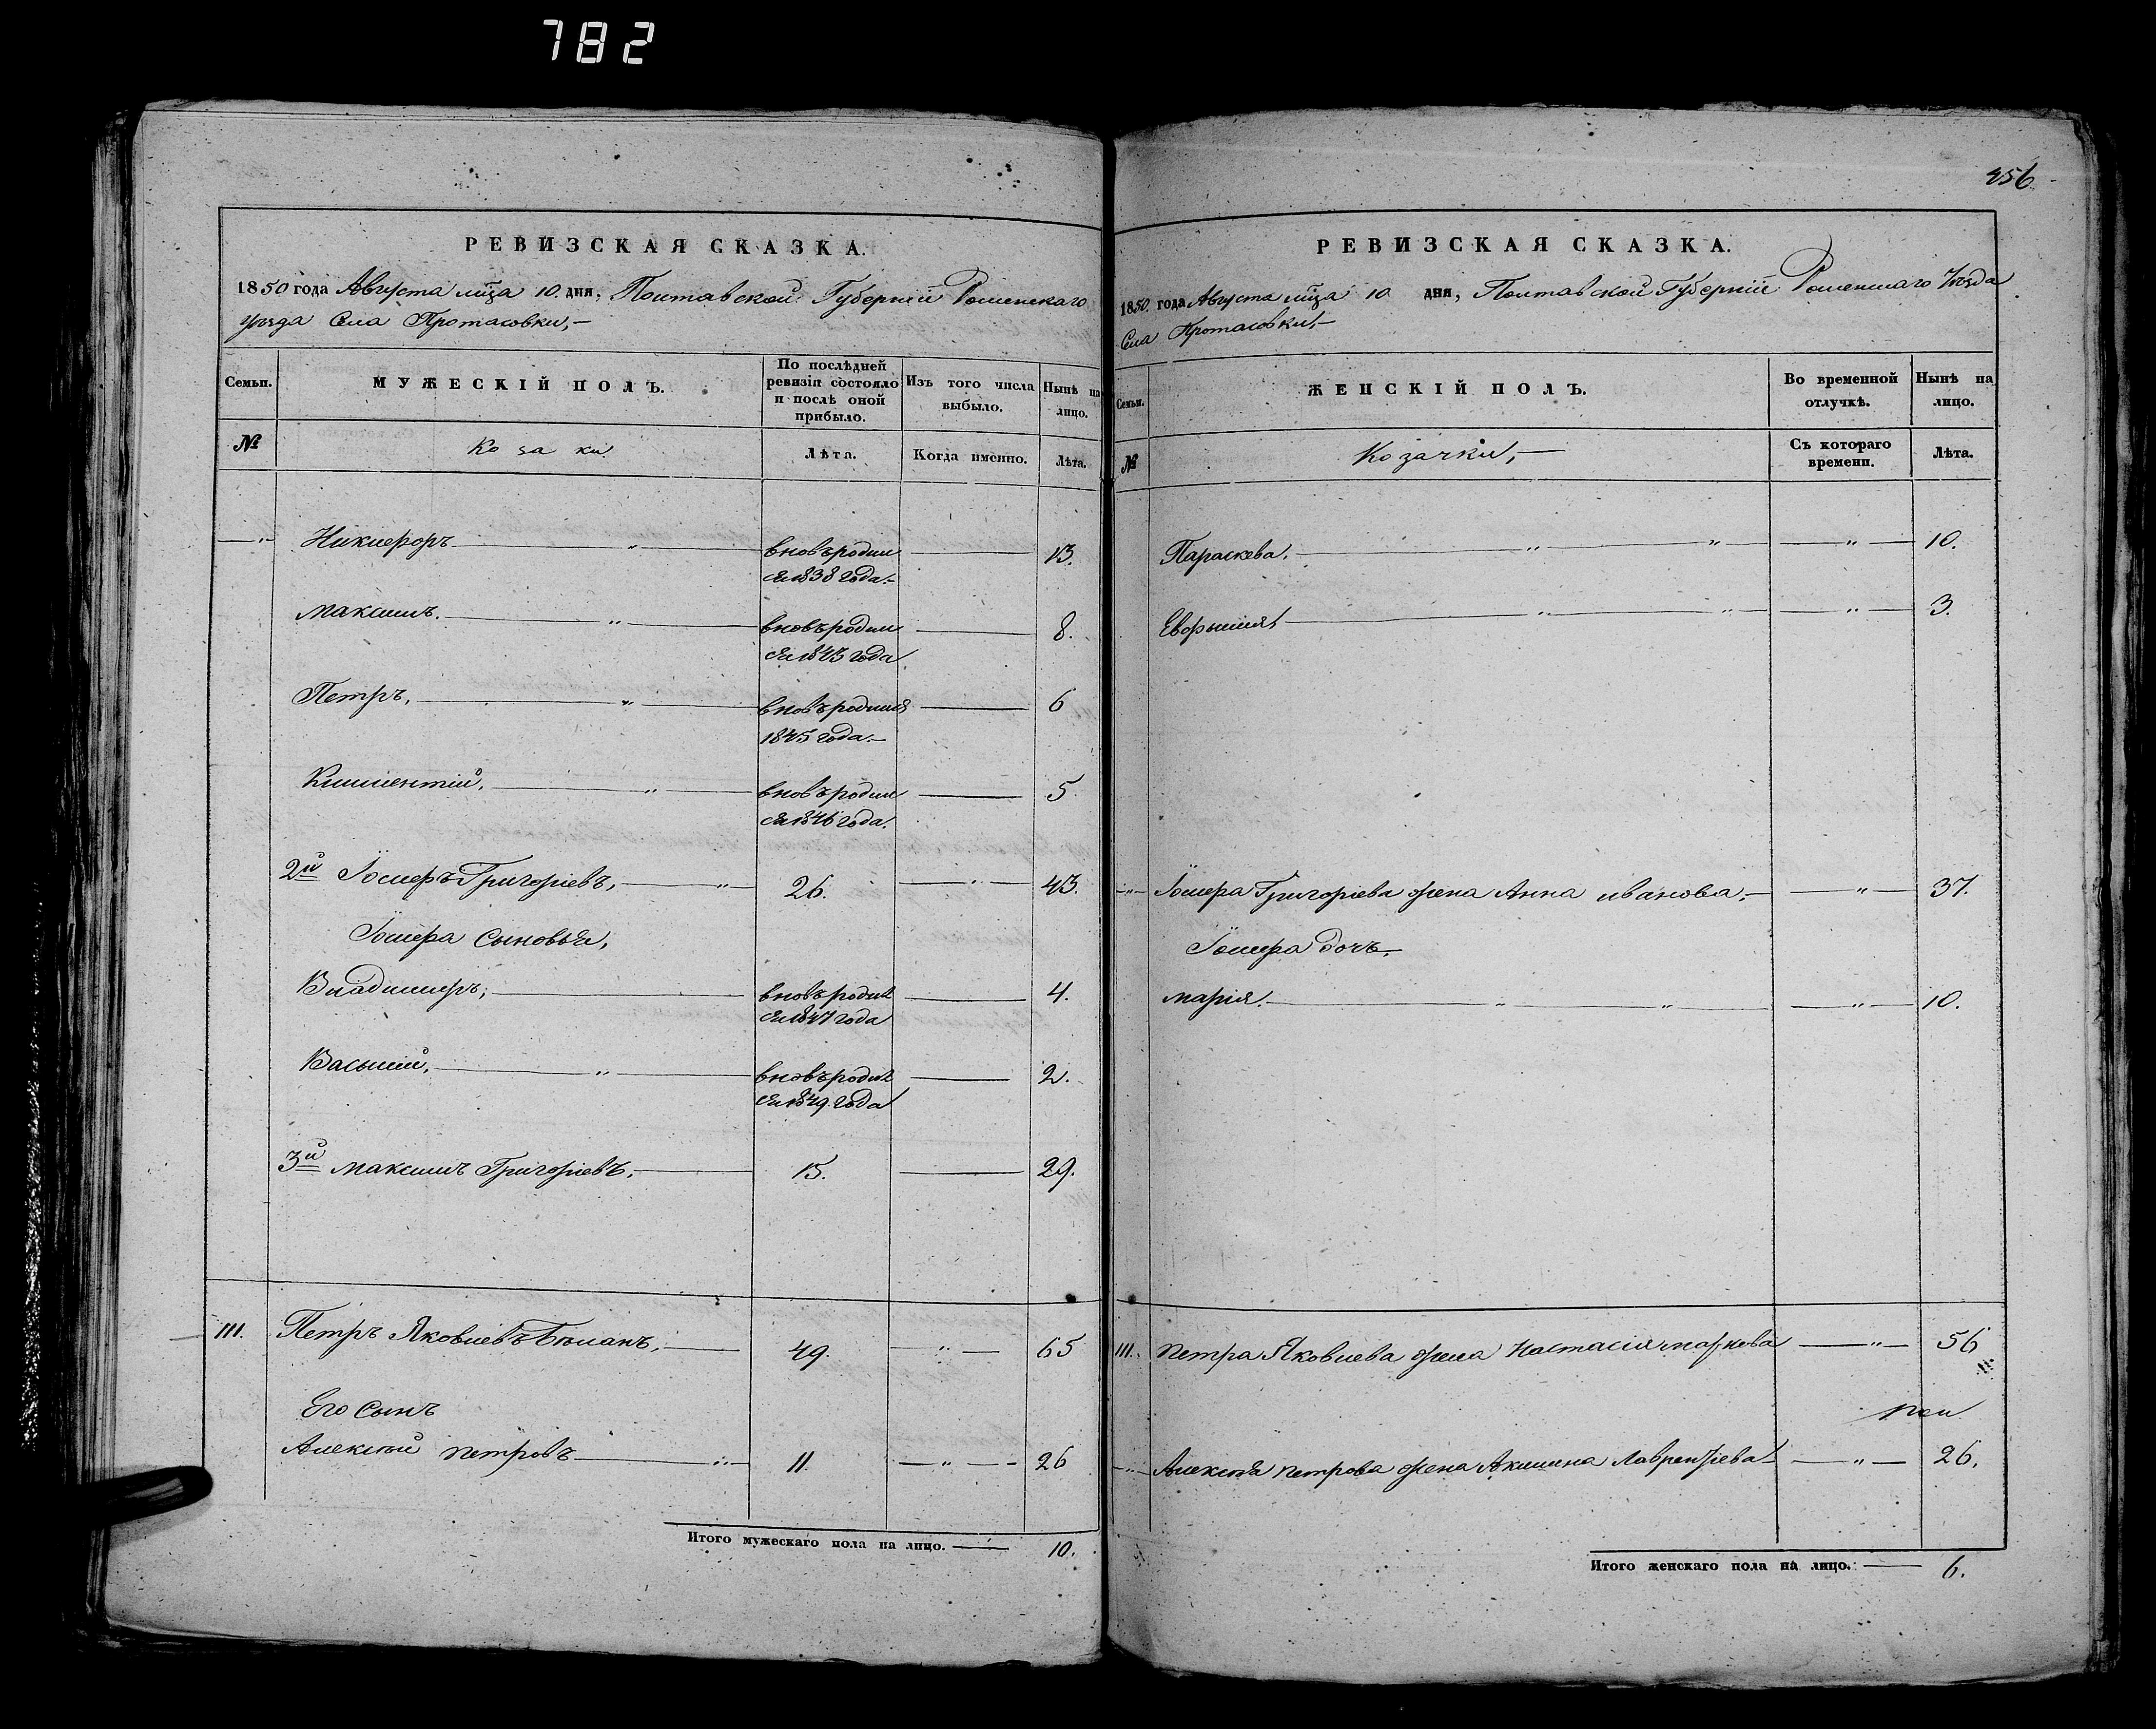 782
РЕВИЗСКАЯ СКАЗКА.
1850 года Августа мца 10. дня, Полтавской Губерніи Роменскаго
уѣзда Села Протасовки,—
Семьи.
МУЖЕСКІЙ ПОЛЪ.
По послѣдней
ревизіи состояло
и послѣ оной
прибыло.
Изъ того числа
выбыло.
Нынѣ на
лицо.
№
Козаки
Лѣта.
Когда именно.
Лѣта.
Никифоръ — " — вновь родил — 13.
ся 1838 года.—
Максимъ. — " — вновь родил — 8.
ся 1843 года
Петръ, — " — вновь родился — 6
1845 года.—
Климентій, — " — вновь родил — 5
ся 1846 года.
2й Іосифъ Григоріевъ, — " — 26. — " — 43.
Іосифа сыновья,
Владимиръ, — вновь родил — 4.
ся 1847 года
Василий, — " — вновь родил — 2.
ся 1849. года
3й Максимъ Григоріевъ, — 15. — 29.
111. Петръ Яковлевъ — 49. — " — 65
Его сынъ
Алексѣй Петровъ — " — 11. — " — 26
Итого мужескаго пола на лицо. — 10.
456
РЕВИЗСКАЯ СКАЗКА.
1850. года Августа мца 10 дня, Полтавской Губерніи Роменскаго Уѣзда
Села Протасовки,—
Семьи.
ЖЕНСКІЙ ПОЛЪ.
Во временной
отлучкѣ.
Нынѣ на
лицо.
№
Козачки,—
Съ котораго
времени.
Лѣта.
Параскева. — " — " — " — 10.
Евфимия — " — " — " — 3.
— " — Іосифа Григоріева жена Анна Иванова. — " — 37.
Іосифа дочь.
Марія. — " — " — " — 10.
111. Петра Яковлева жена Настасія Маркова — " — 56
— " — Алексѣя Петрова жена Акилина Лаврентіева — " — 26.
Итого женскаго пола на лицо. — 6.